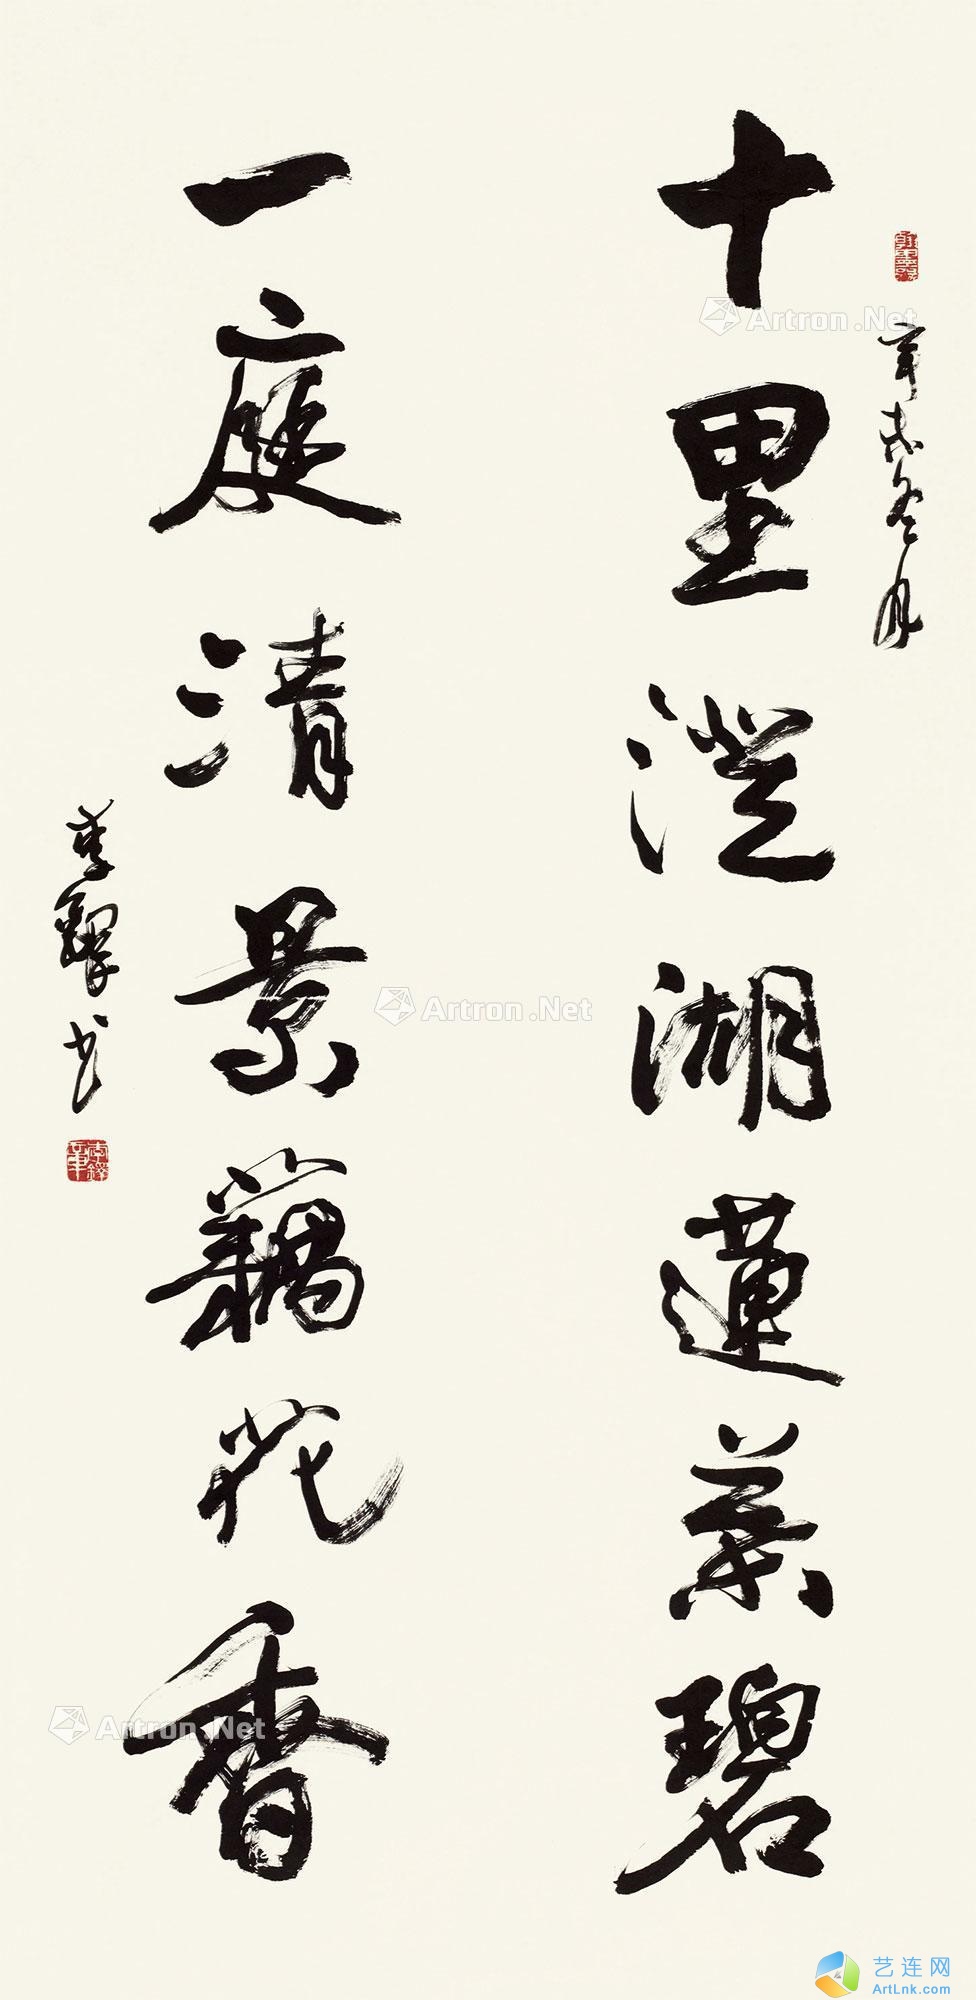 辛未冬月
十里澄湖蓮葉碧
一庭清景藕花香
李鐸书
李鐸
Artron.Net
Artron.Net
Artron.Net
艺连网
ArtLnk.com